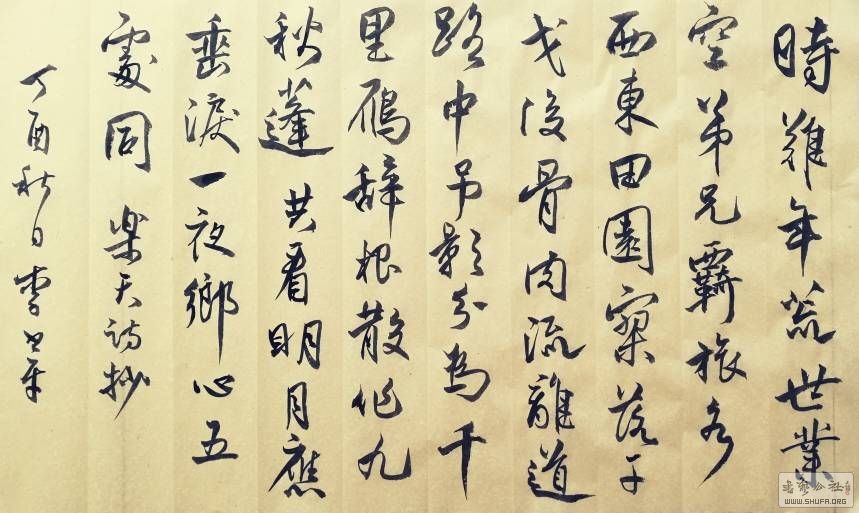 時難年荒世業
空弟兄覊旅各
西東田園寥落干
戈後骨肉流離道
路中吊影分為千
里鴈辞根散作九
秋蓬共看明月應
垂淚一夜鄉心五
處同 楽天詩抄
丁酉秋日李
书艺公社
WWW.SHUFA.ORG